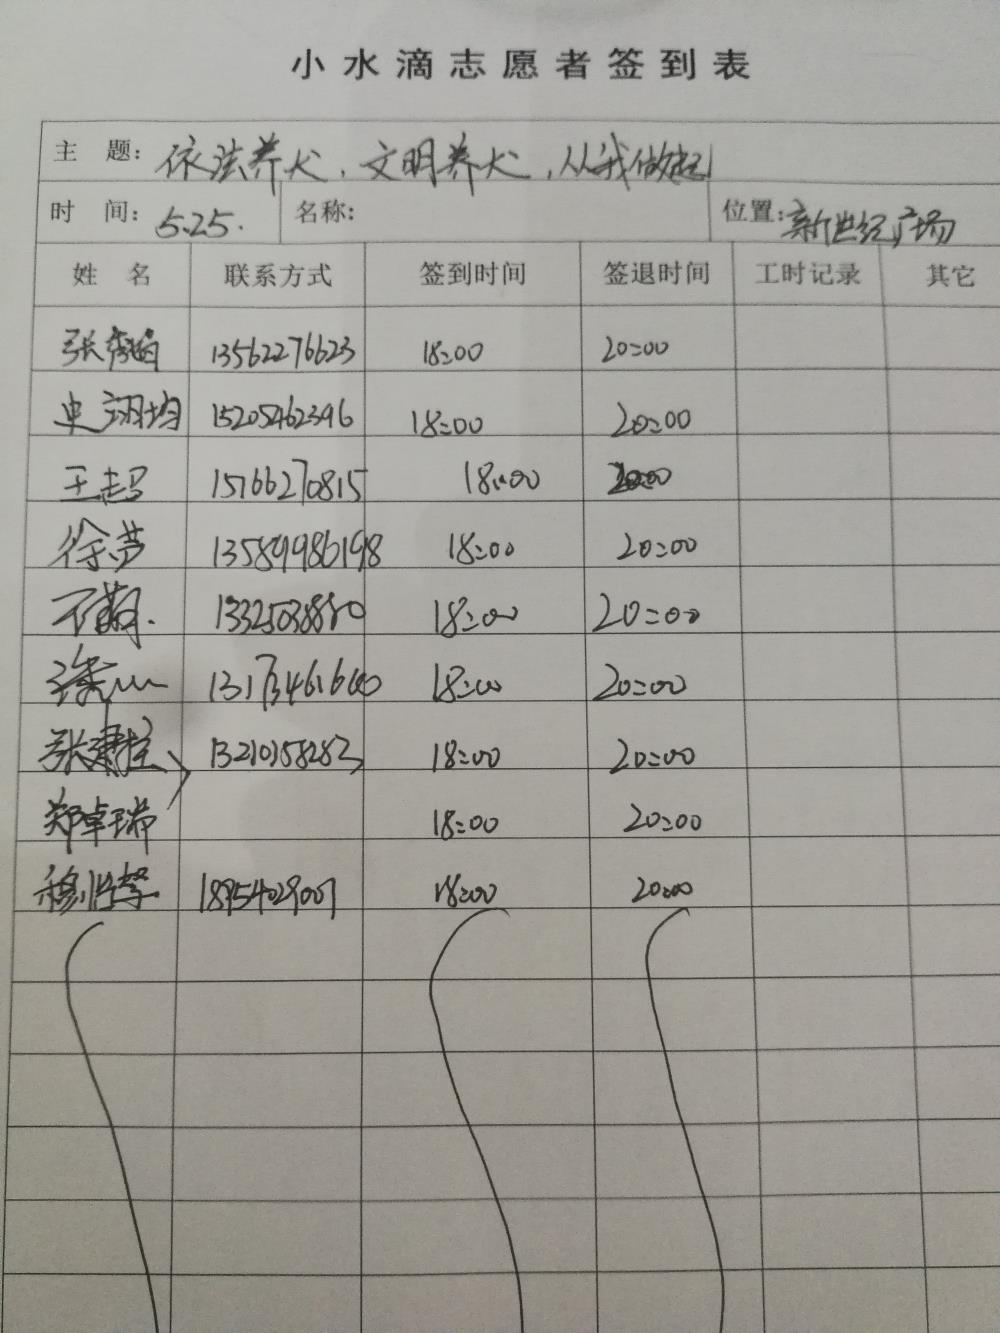 小水滴志愿者签到表
主 题: 依法养犬、文明养犬,从我做起
时 间: 5.25. 名称: 位置: 新世纪广场
姓 名 联系方式 签到时间 签退时间 工时记录 其它
张秀娟 13562276623 18:00 20:00
史翊均 15205462346 18:00 20:00
王超 15166270815 18:00 20:00
徐梦 13589986198 18:00 20:00
18:00 20:00
18:00 20:00
张建拴 13210158283 18:00 20:00
郑卓瑞 18:00 20:00
18954029007 18:00 20:00